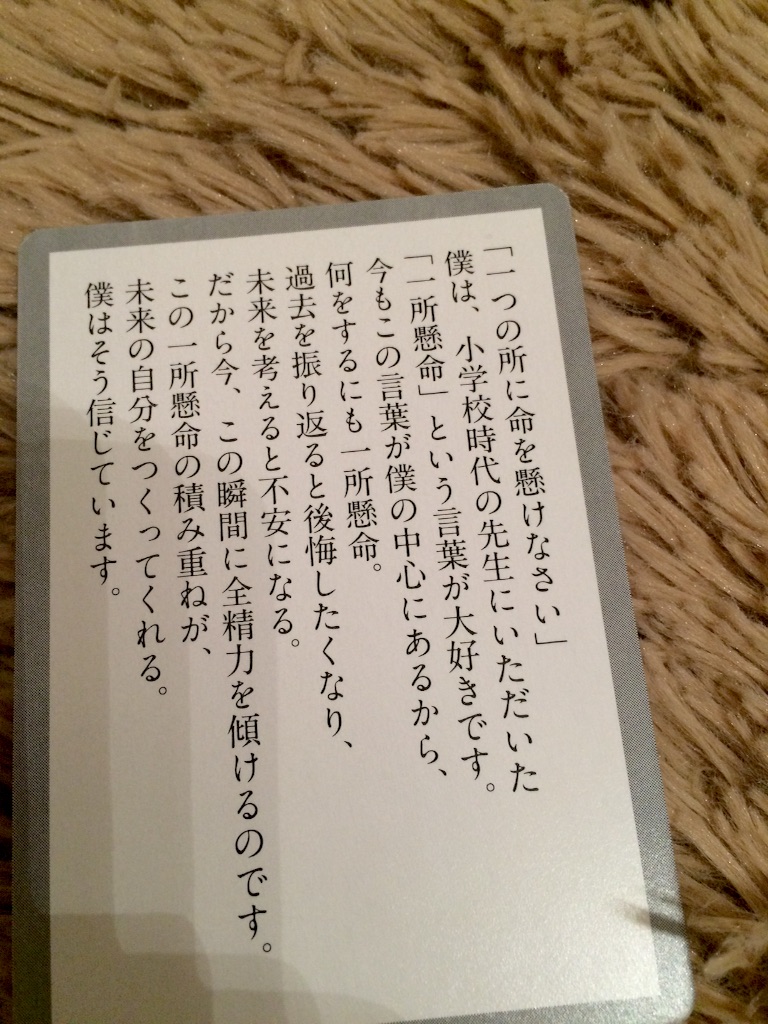 「一つの所に命を懸けなさい」
僕は、小学校時代の先生にいただいた
「一所懸命」という言葉が大好きです。
今もこの言葉が僕の中心にあるから、
何をするにも一所懸命。
過去を振り返ると後悔したくなり、
未来を考えると不安になる。
だから今、この瞬間に全精力を傾けるのです。
この一所懸命の積み重ねが、
未来の自分をつくってくれる。
僕はそう信じています。